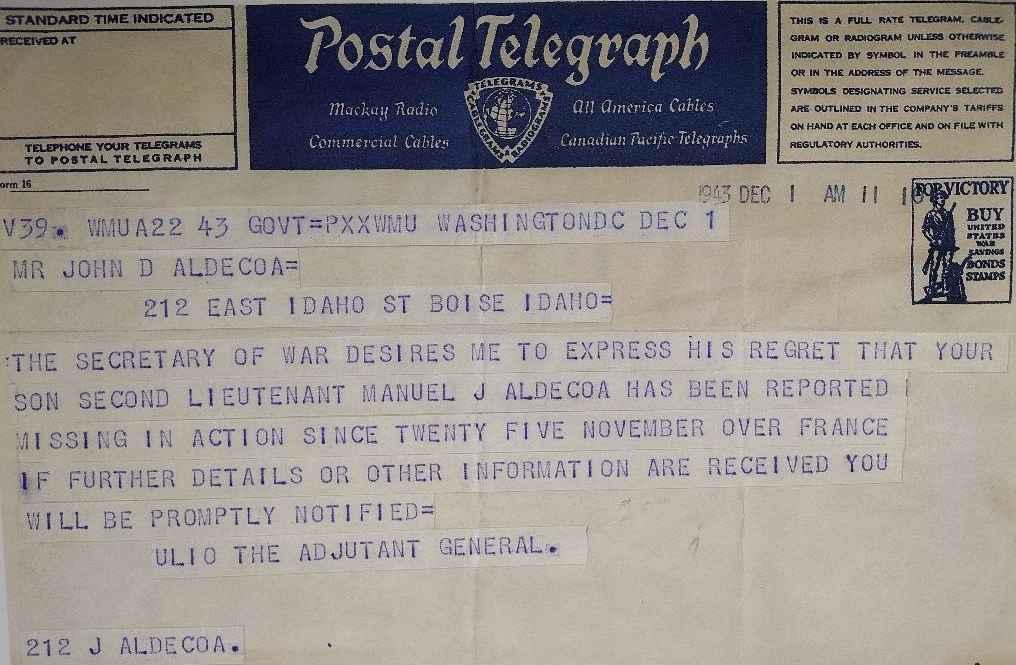 STANDARD TIME INDICATED
RECEIVED AT
TELEPHONE YOUR TELEGRAMS
TO POSTAL TELEGRAPH
orm 16
Postal Telegraph
Mackay Radio
Commercial Cables
TELEGRAMS
CABLEGRAMS
RADIOGRAMS
All America Cables
Canadian Pacific Telegraphs
THIS IS A FULL RATE TELEGRAM, CABLE-
GRAM OR RADIOGRAM UNLESS OTHERWISE
INDICATED BY SYMBOL IN THE PREAMBLE
OR IN THE ADDRESS OF THE MESSAGE.
SYMBOLS DESIGNATING SERVICE SELECTED
ARE OUTLINED IN THE COMPANY'S TARIFFS
ON HAND AT EACH OFFICE AND ON FILE WITH
REGULATORY AUTHORITIES.
1943 DEC 1 AM 11
FOR VICTORY
BUY
UNITED
STATES
WAR
SAVINGS
BONDS
STAMPS
V39. WMUA22 43 GOVT=PXXWMU WASHINGTONDC DEC 1
MR JOHN D ALDECOA=
212 EAST IDAHO ST BOISE IDAHO=
:THE SECRETARY OF WAR DESIRES ME TO EXPRESS HIS REGRET THAT YOUR
SON SECOND LIEUTENANT MANUEL J ALDECOA HAS BEEN REPORTED
MISSING IN ACTION SINCE TWENTY FIVE NOVEMBER OVER FRANCE
IF FURTHER DETAILS OR OTHER INFORMATION ARE RECEIVED YOU
WILL BE PROMPTLY NOTIFIED=
ULIO THE ADJUTANT GENERAL.
212 J ALDECOA.